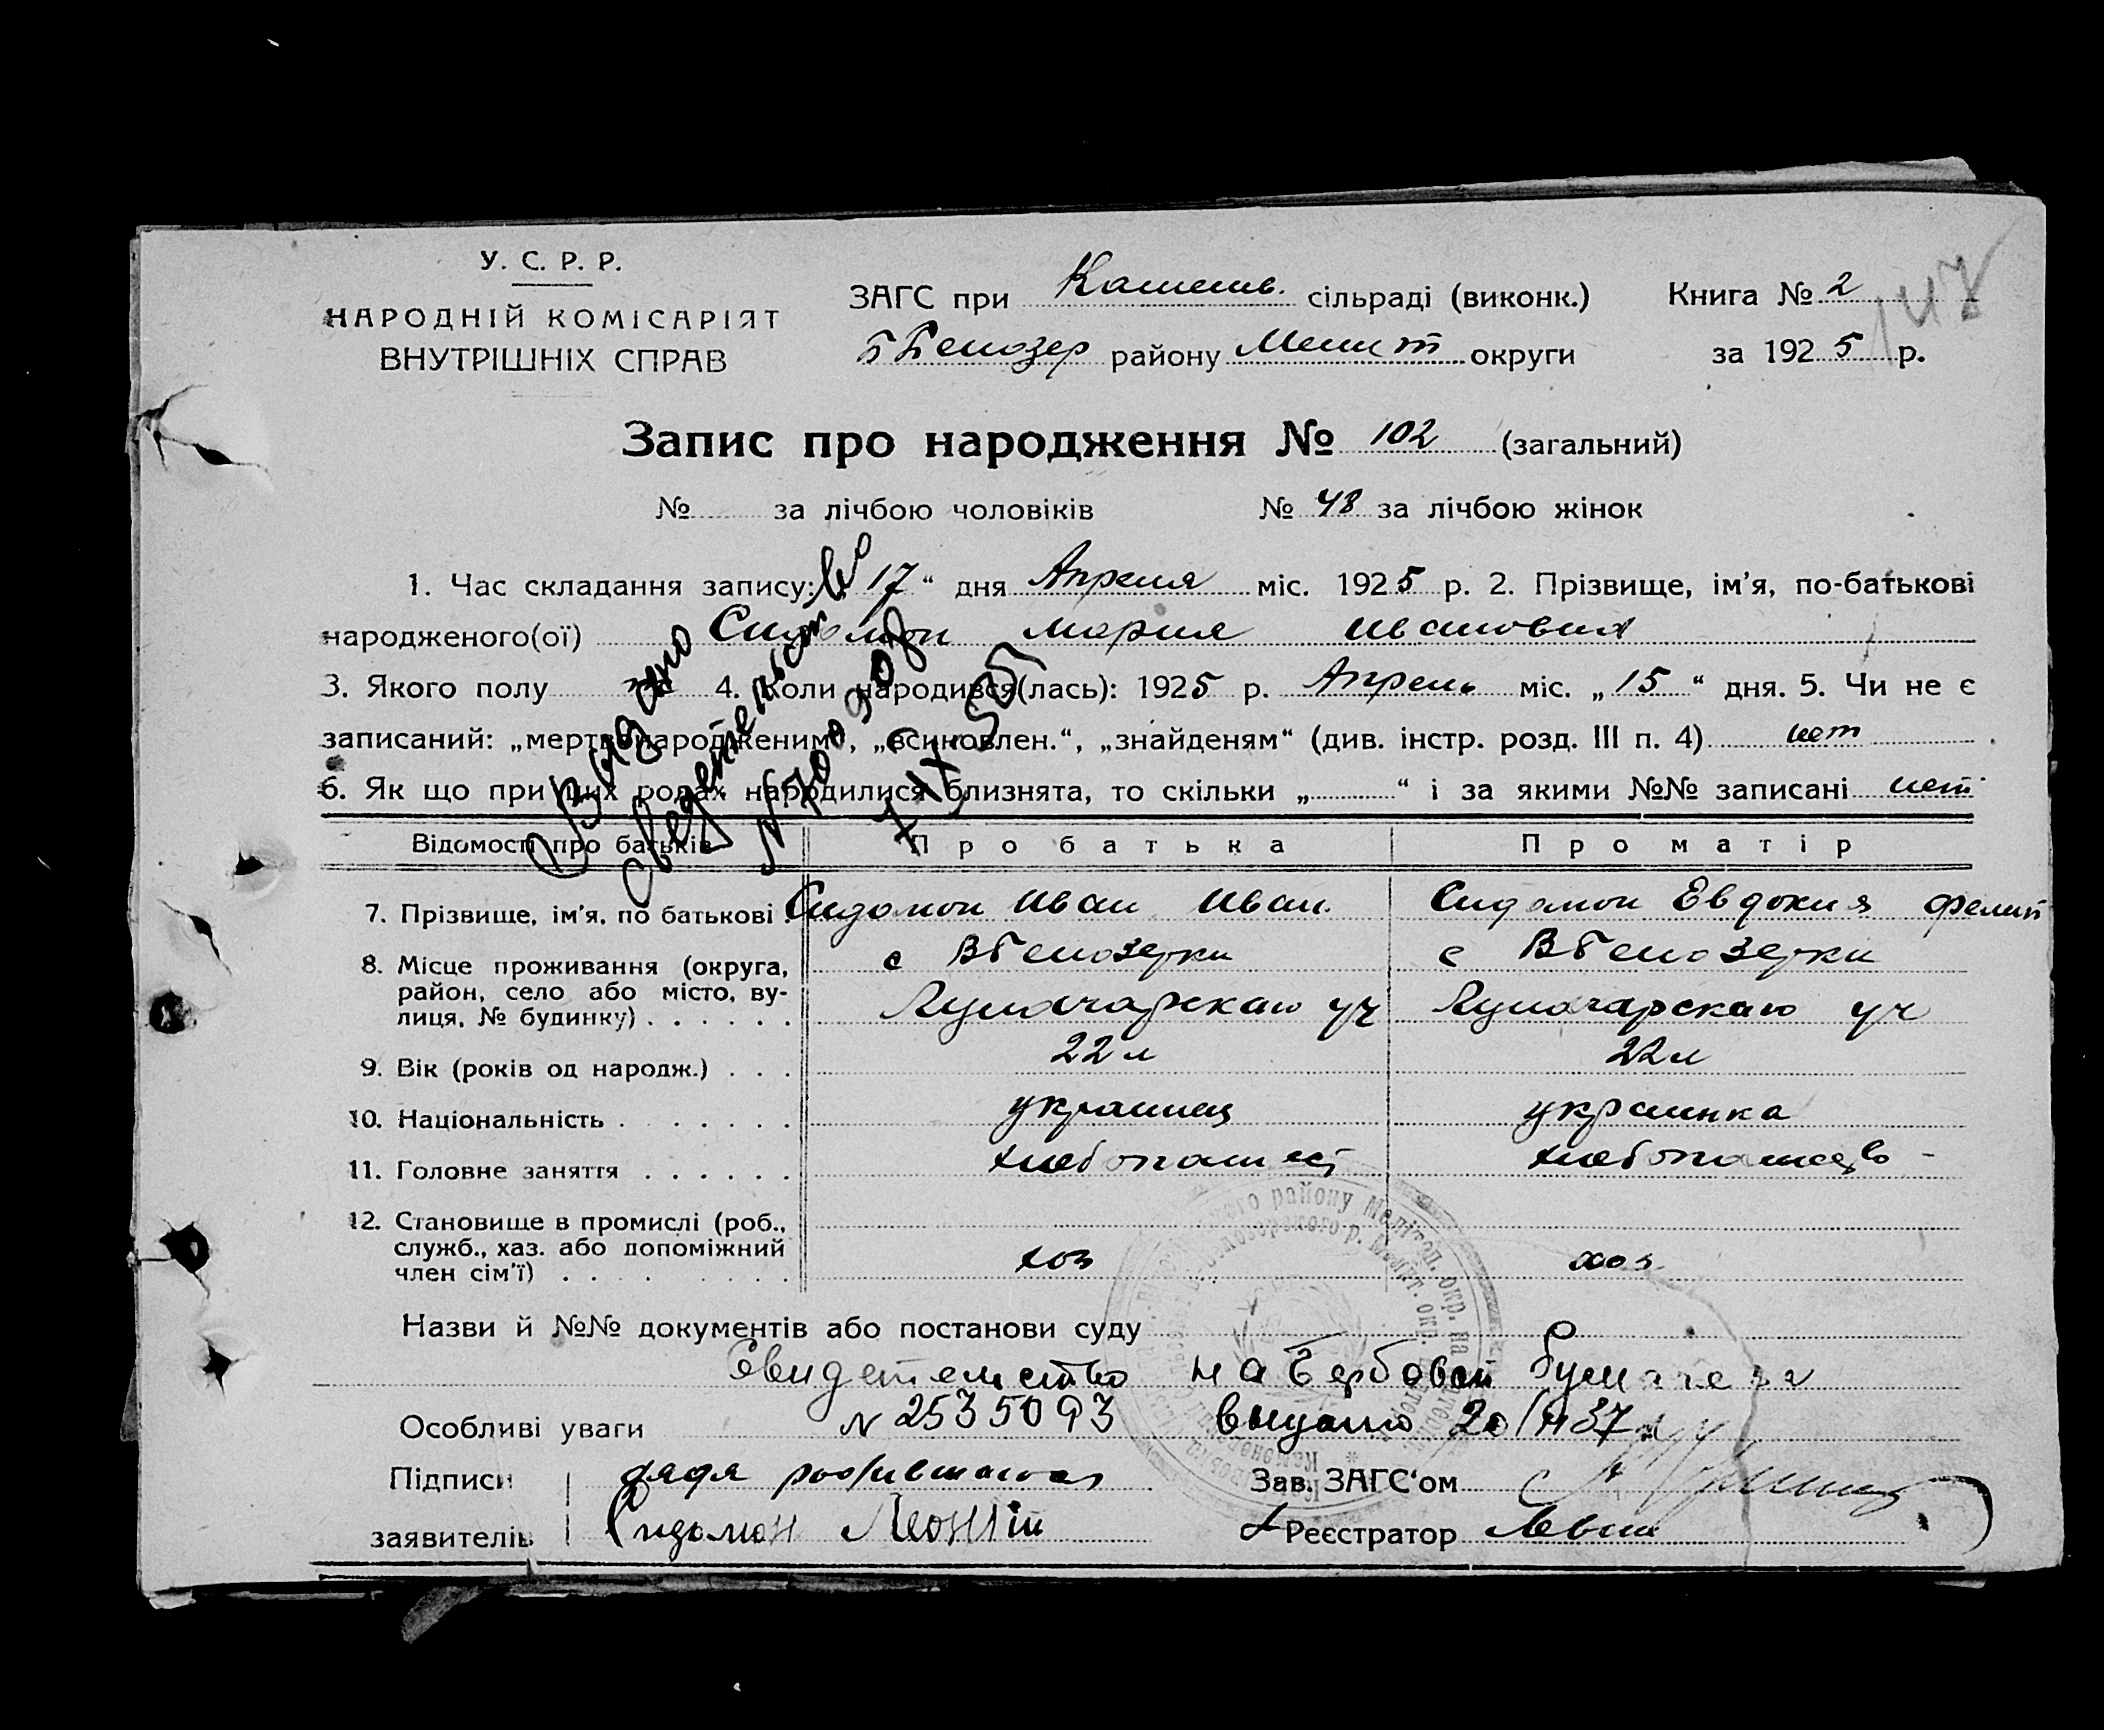 У. С. Р. Р.
НАРОДНІЙ КОМІСАРІЯТ
ВНУТРІШНІХ СПРАВ
ЗАГС при Каменев. сільраді (виконк.)
Б Белозер району Мелит округи
Книга № 2
за 1925 р.
147
Запис про народження № 102 (загальний)
№ за лічбою чоловіків № 48 за лічбою жінок
1. Час складання запису: „17“ дня Апреля міс. 1925 р. 2. Прізвище, ім'я, по-батькові
народженого(ої) Сидомон Мария Ивановна
3. Якого полу 4. Коли народився(лась): 1925 р. Апрель міс. „15“ дня. 5. Чи не є
записаний: „мертвонародженим“, „всиновлен.“, „знайденям“ (див. інстр. розд. III п. 4) нет
6. Як що при цих родах народилися близнята, то скільки „ “ і за якими №№ записані нет
Выдано
свидетельство
Відомості про батьків Про батька Про матір
7. Прізвище, ім'я, по батькові Сидомон Иван Иван. Сидомон Евдокия Филип
8. Місце проживання (округа, район, село або місто, вулиця, № будинку) с ВБелозерки с ВБелозерки
Луначарскаго уч Луначарскаго уч
9. Вік (років од народж.) 22 л 22 л
10. Національність украинец украинка
11. Головне заняття хлебопашец хлебопашество
12. Становище в промислі (роб., служб., хаз. або допоміжний член сім'ї) хоз хоз
Назви й №№ документів або постанови суду
Свидетельство на Гербовой бумаге за
Особливі уваги № 2535093 выдано 20/
Підписи дядя
заявителів Сидомон
Зав. ЗАГС'ом
Реєстратор Левин